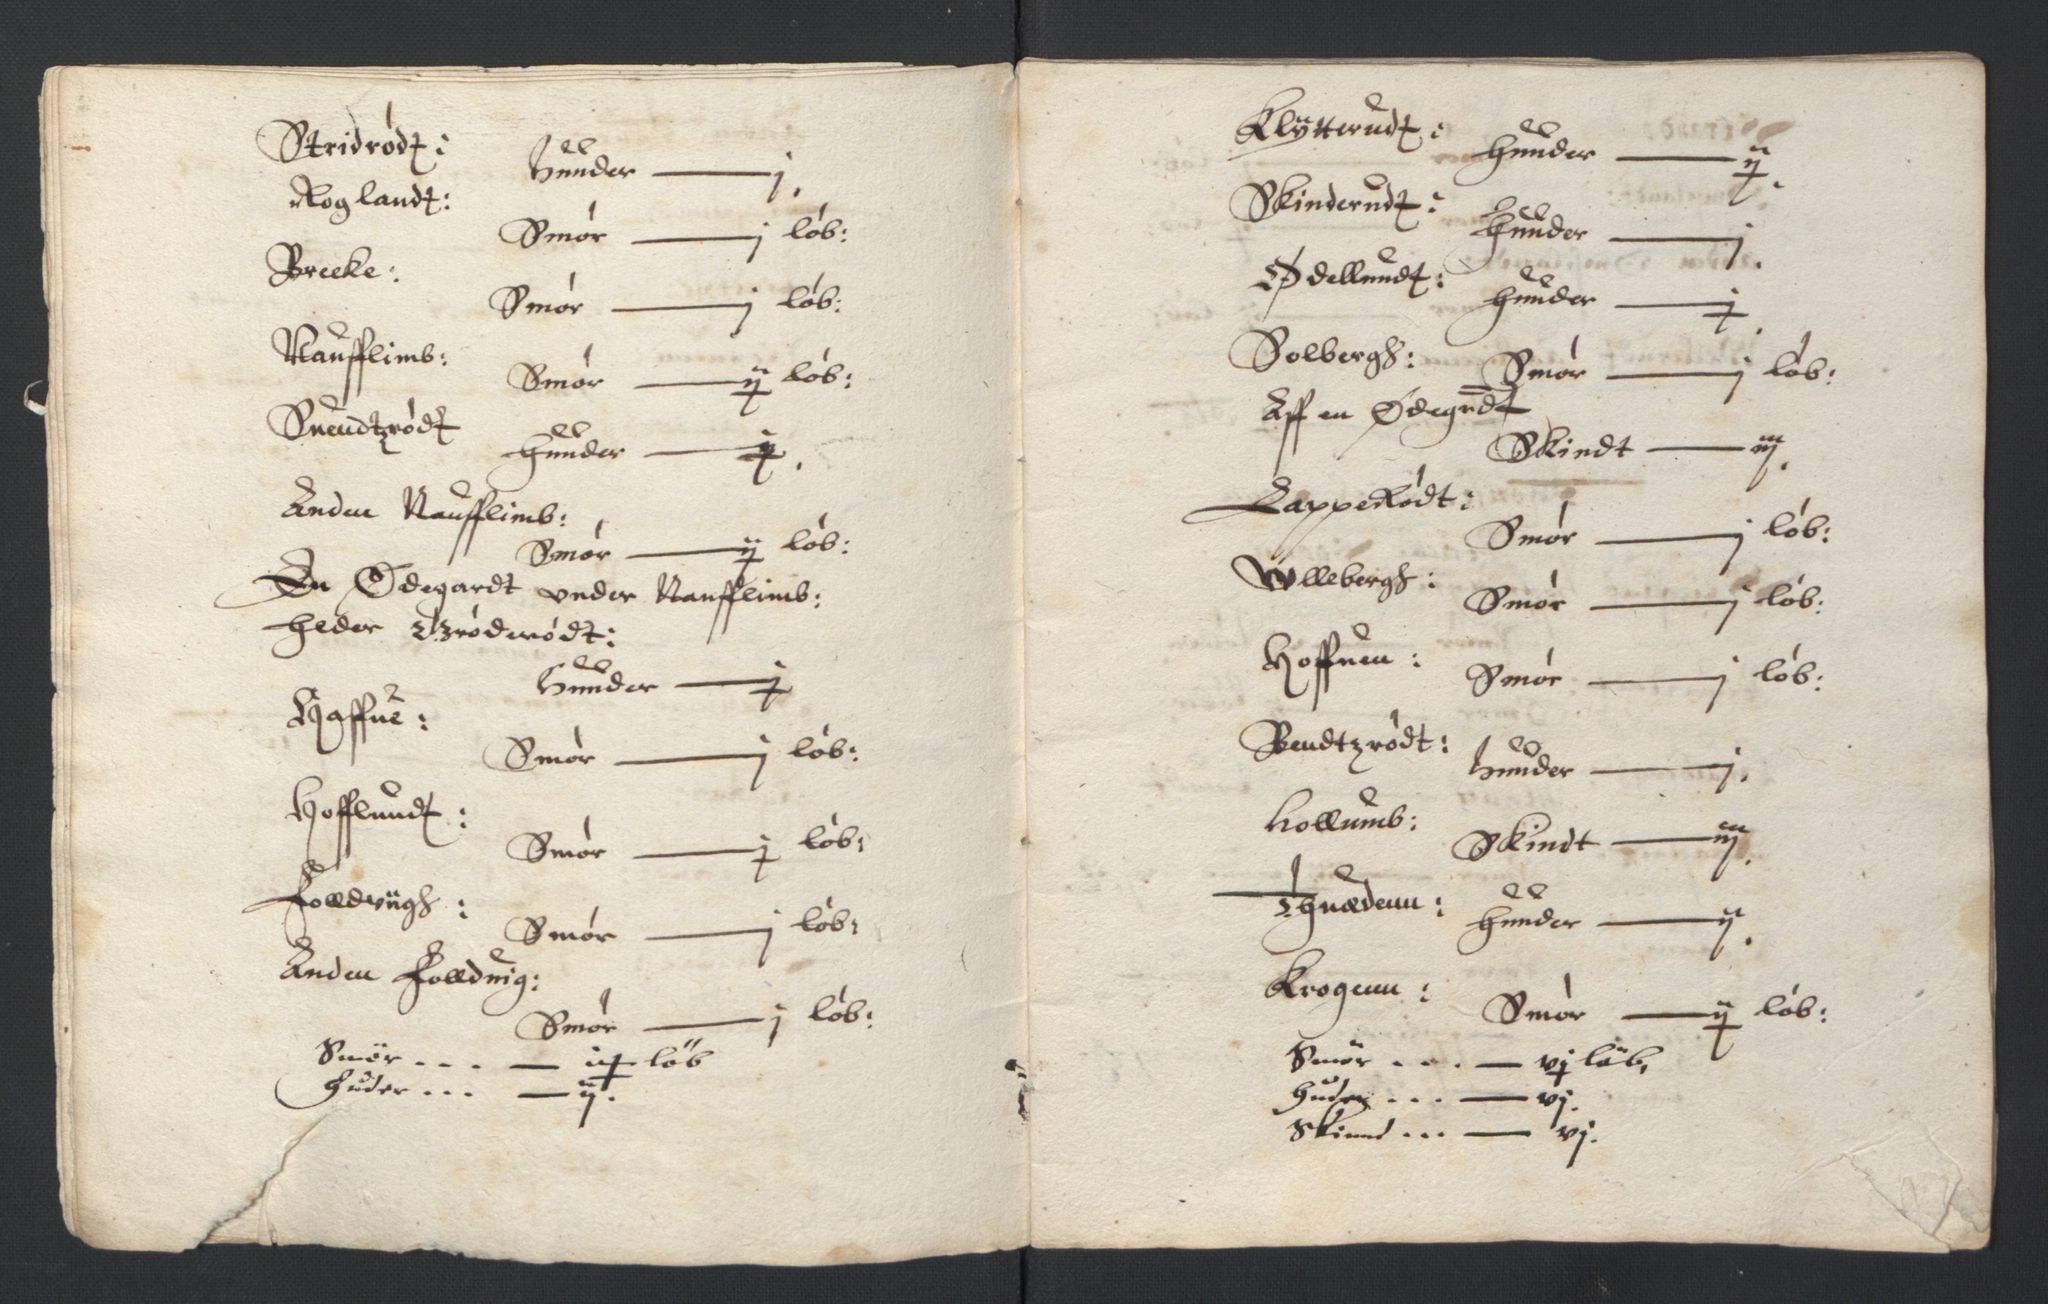 Stridrødt:
Huuder — j.
Roglandt:
Smør — j løb:
Brecke:
Smør — j løb:
Naufflimb:
Smør — ij løb:
Suendtzrødt
Huuder — j.
Anden Naufflimb:
Smør — ij løb:
En Ødegardt vnder Naufflimb:
heder Tzrøderødt:
Huuder — j
Haffue:
Smør — j løb:
Hofflundt:
Smør — j løb:
Folleduigh:
Smør — j løb:
Anden Folleduig:
Smør — j løb:
Smör . . . — løb
Huder . . . — ij.
Klÿtterudt:
Huuder — ij.
Skinderudt:
Huuder — j.
Ødellundt:
Huuder — j
Solbergh:
Smør — j løb:
Aff en Ødegrdt
Skindt — iij.
LappeRødt:
Smør — j løb:
Wllebergh:
Smør — j løb:
Hoffuen:
Smør — j løb:
Bendtzrødt:
Huuder — j.
Hollumb:
Skindt — iij.
Thuedenn:
Huuder — ij.
Krogenn:
Smør — ij løb:
Smör . . . — vj löb,
Huder . . . — vj.
Skinnd . . . — vj.